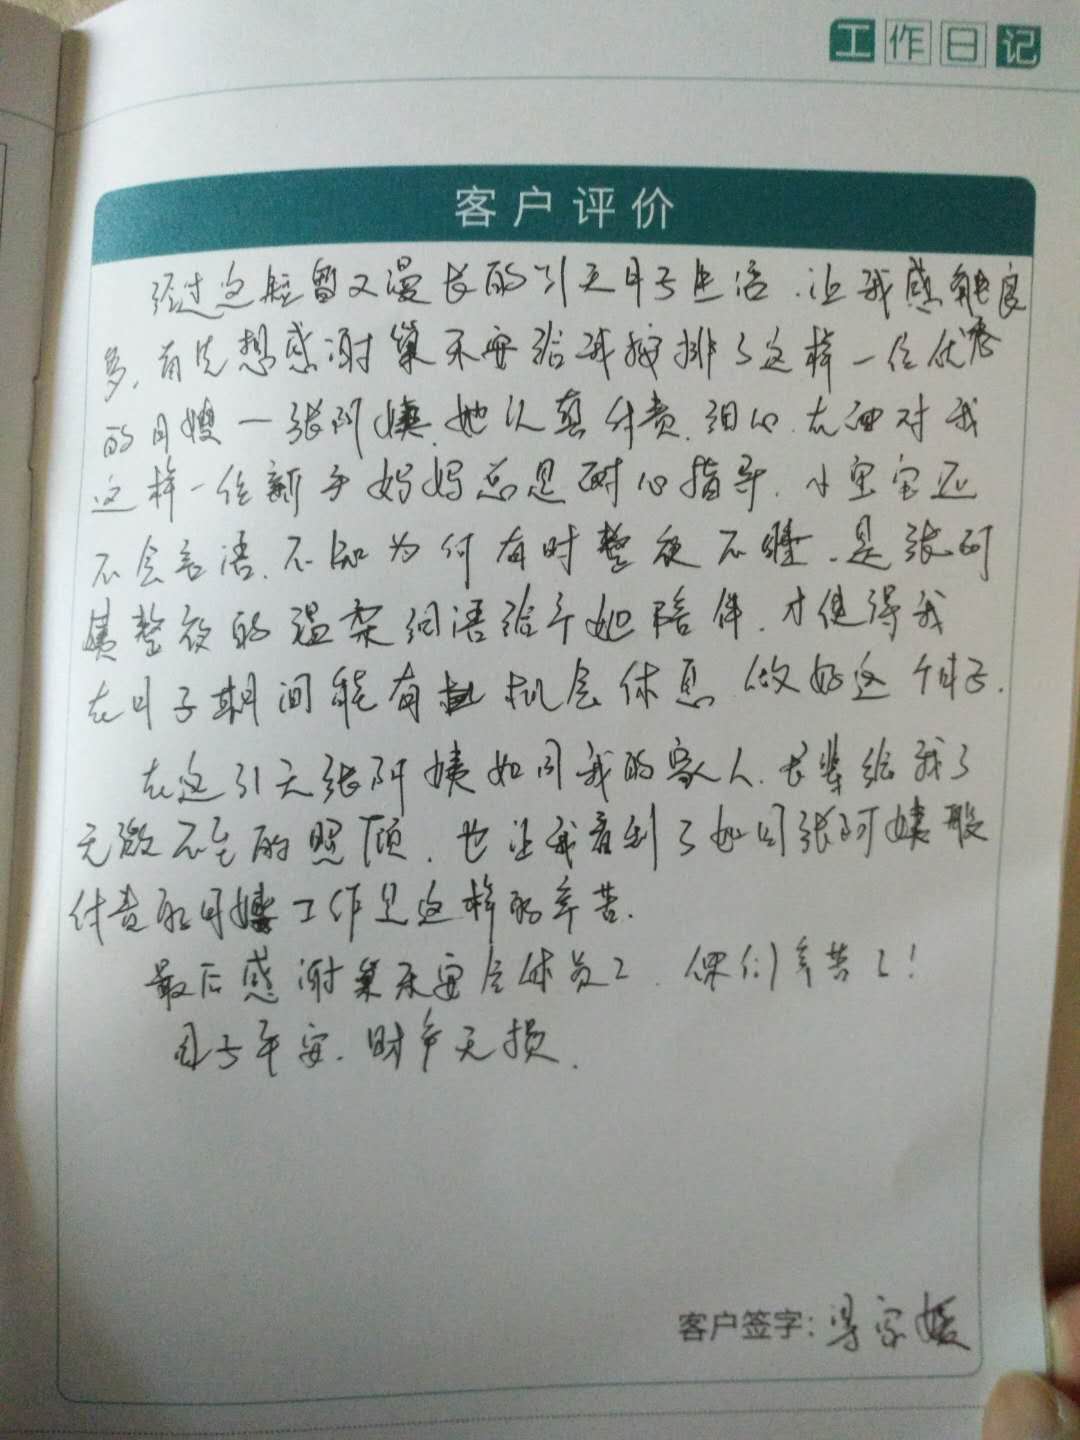 工作日记
客户评价
经过这短暂又漫长的31天月子生活，让我感触良
多，首先想感谢巢未安给我按排了这样一位优秀
的月嫂一张阿姨，她认真付责，细心，在面对我
这样一位新手妈妈总是耐心指导，小宝宝还
不会言语，不知为何有时整夜不睡，是张阿
姨整夜的温柔细语给予她陪伴，才使得我
在月子期间能有机会休息，做好这个月子。
在这31天张阿姨如同我的家人、长辈给我了
无微不至的照顾，也让我看到了如同张阿姨般
付责的月嫂工作是这样的辛苦。
最后感谢巢未安全体员工，你们辛苦了！
母子平安，财产无损。
客户签字：家媛